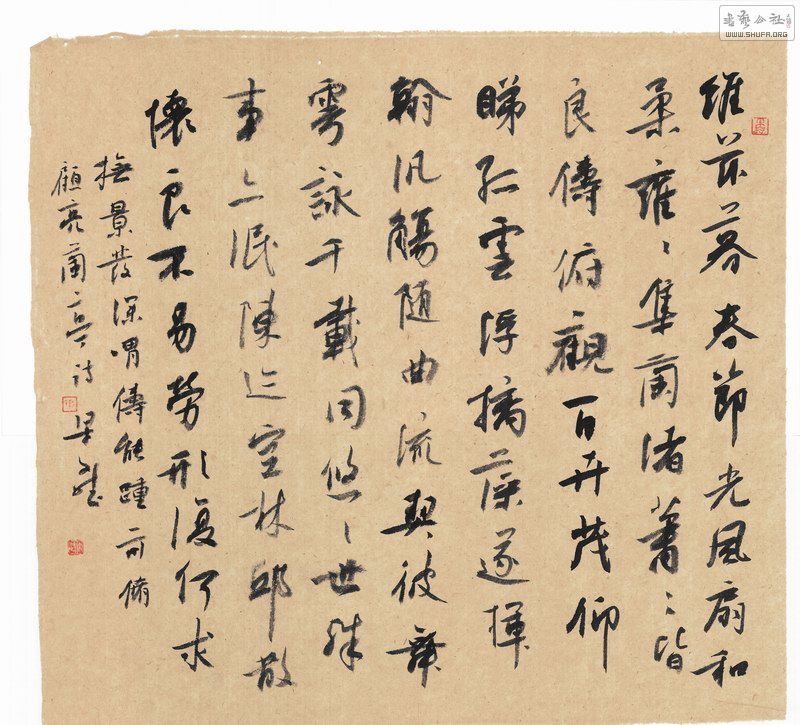 維茲暮春節光風扇和
柔雍〻集蘭渚蕭〻皆
良儔俯觀百卉茂仰
睇孤雲浮摛藻遂揮
翰汎觴隨曲流契彼舞
雩詠千載同悠〻世殊
事亦泯陳迹空林邱散
懷良不易勞形復何求
撫景發深喟儔能踵前脩
顧亮蘭亭詩
書藝公社
WWW.SHUFA.ORG